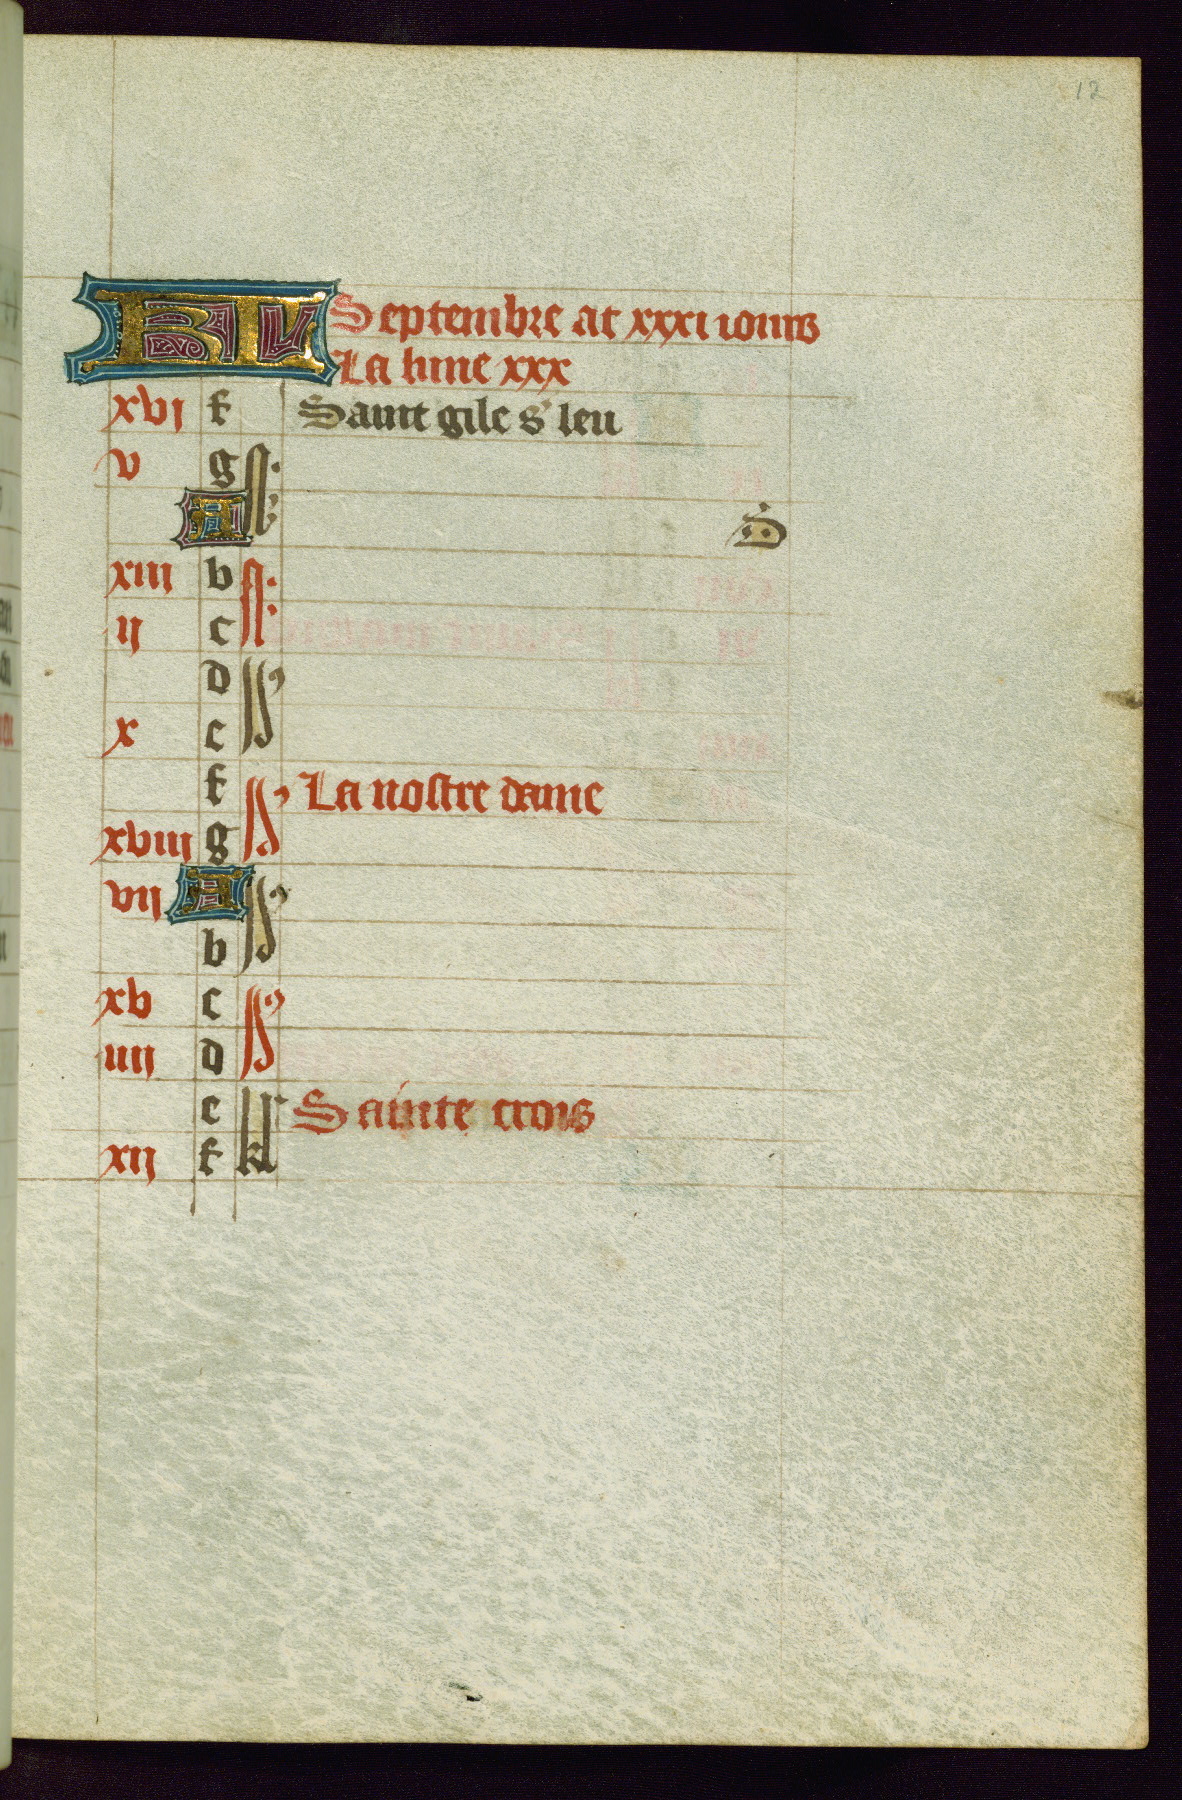 12
KL Septembre at xxxi iours
La lune xxx
xvi f Saint gile s' leu
v g
A
D
xiii b
ii c
d
x e
f La nostre dame
xviii g
vii A
b
xv c
iiii d
e Sainte crois
xii f kl